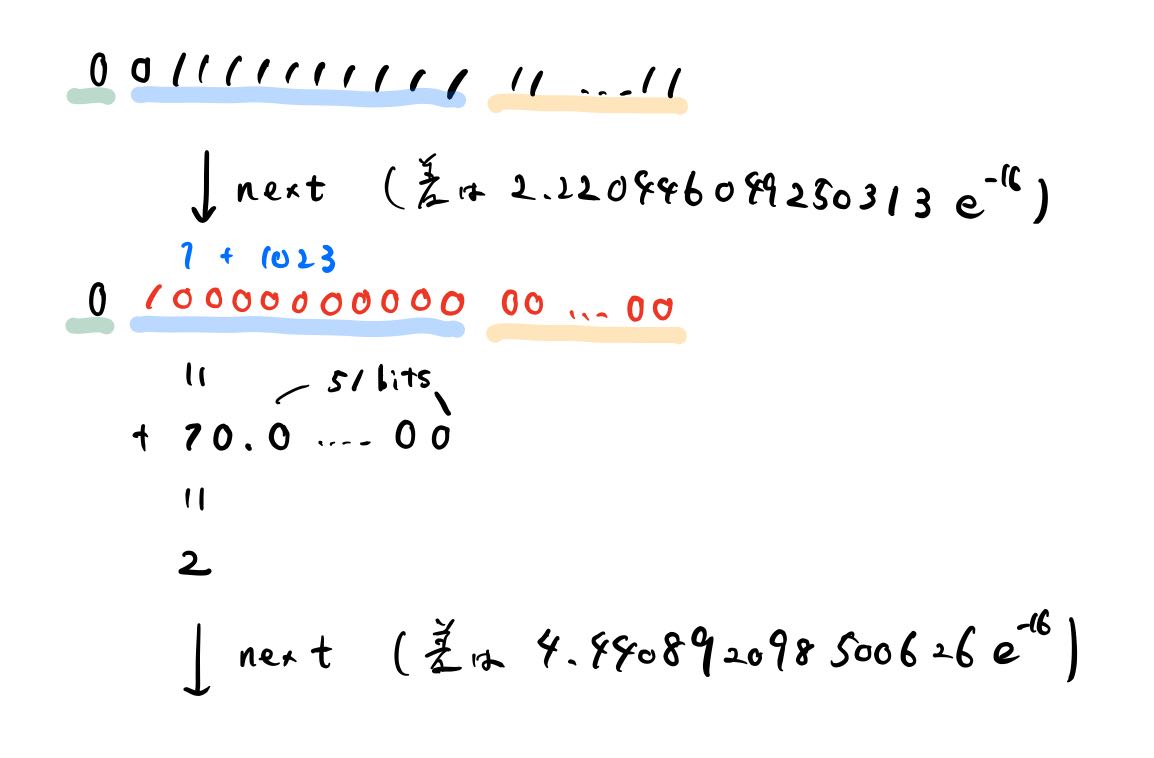 0 01111111111 11 ....11
↓ next (差は 2.220446049250313 e-16)
1 + 1023
0 10000000000 00 ....00
=
51 bits
+ 10.0 .... 00
=
2
↓ next (差は 4.440892098500626 e-16)